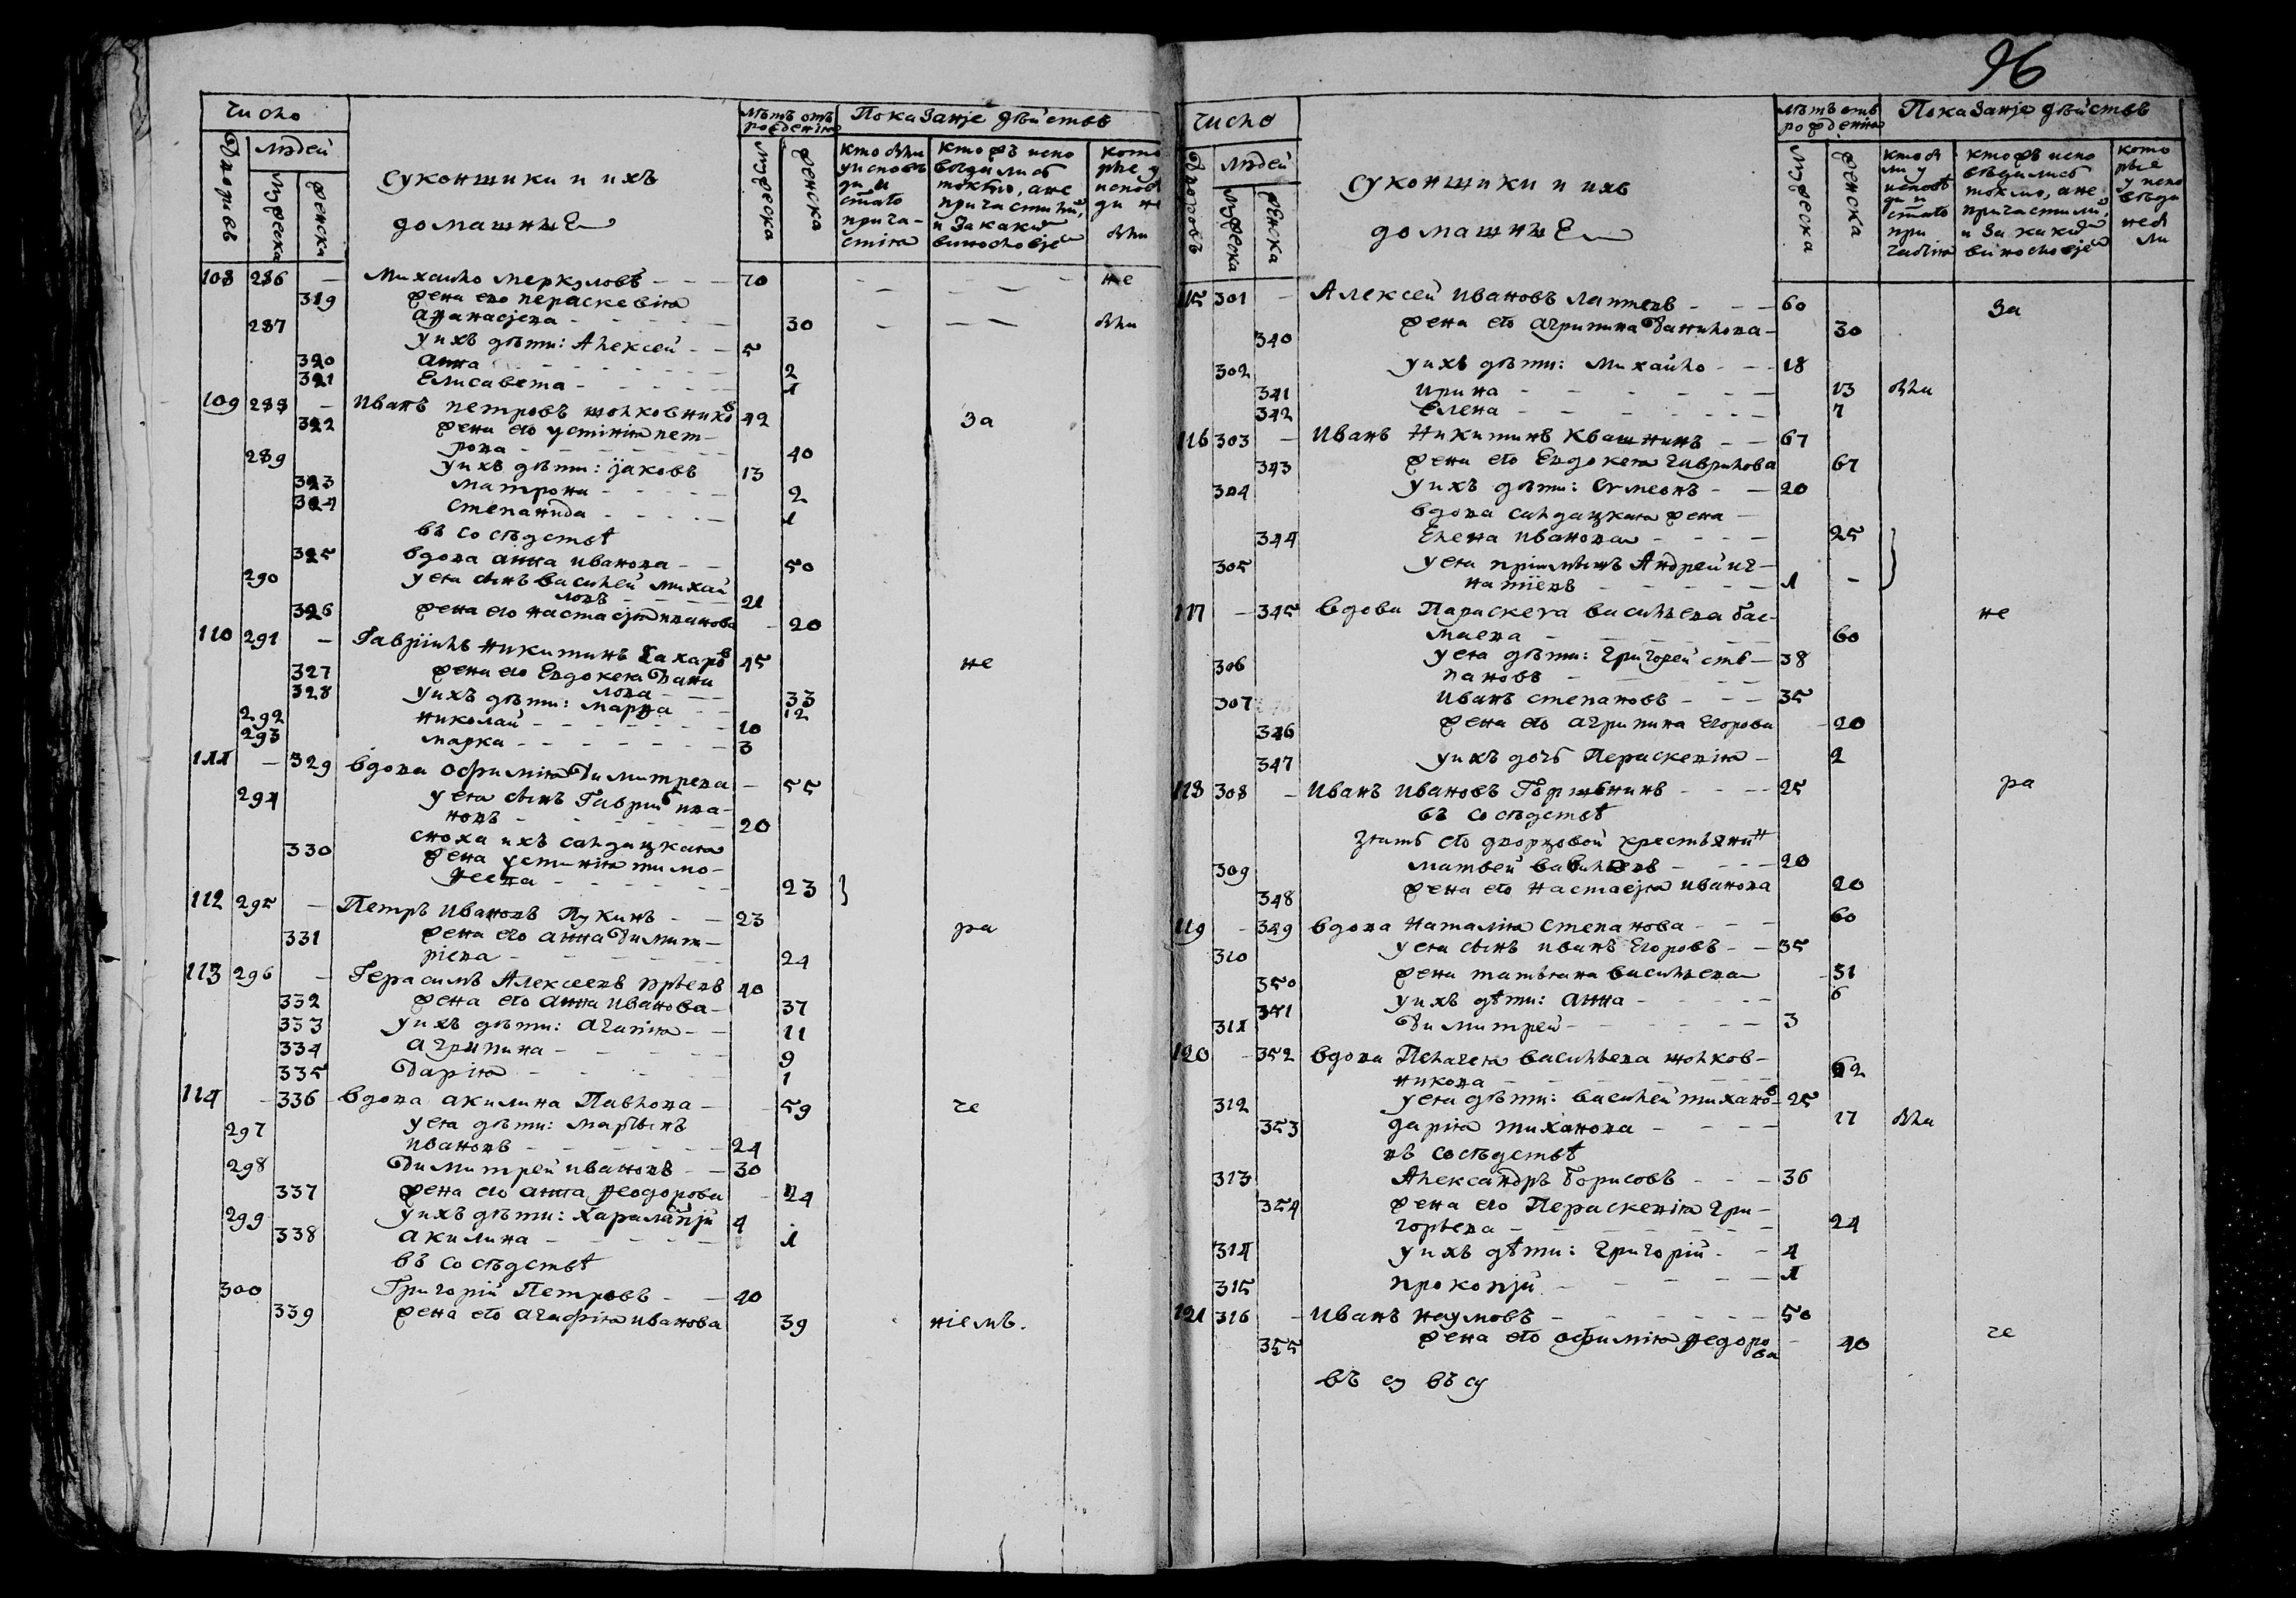 число
Дворовъ
людей
мужеска
женска
суконщики и ихъ
домашние
лѣтъ отъ
рождения
мужеска
женска
Показанїе дѣйствъ
кто были
у исповѣ
ди и
стаго
прича-
стия
кто жъ испо
вѣдались
токмо, а не
причастили,
и за каки
винословїе
кото
рые у
исповѣ
ди не
были
108 286 — Михаило меркуловъ — 70 — — не
319 жена его параскевия
афанасїева — 30 — — были
287 у ихъ дѣти: Алексей — 5
320 анна — 2
321 Елисавета — 1
109 288 — Иванъ петровъ шолковнико 42 за
322 жена его устиния пет-
рова — 40
289 у ихъ дѣти: їаковъ 13
323 матрона — 2
324 степанида — 1
въ сосѣдствѣ
325 вдова анна иванова — 50
290 у ея сынъ василей михаи
ловъ — 21
326 жена его настасїя иванова — 20
110 291 — Гаврїилъ никитинъ захаро 45 не
327 жена его Евдокея Дани
лова — 33
328 у ихъ дѣти: марфа — 12
292 николай — 10
293 марка — 3
111 — 329 вдова офимия Димитрева — 55
294 у ея сынъ Гаврил ива-
новъ — 20
сноха ихъ салдацкая
330 жена устиния тимо-
феева — 23
112 295 — Петръ Ивановъ Пукинъ — 23 ра
331 жена его анна Димит-
рїева — 24
113 296 — Герасимъ Алексеевъ 40
332 жена его анна иванова — 37
333 у ихъ дѣти: агапия — 11
334 агрипина — 9
335 Дария — 1
114 — 336 вдова акилина Павлова — 59 че
297 у ея дѣти: мартынъ
ивановъ — 24
298 Димитрей ивановъ — 30
337 жена его анна феодорова — 24
299 у ихъ дѣти: харалампїи 4
338 акилина — 1
въ сосѣдствѣ
300 Григорїй Петровъ — 40
339 жена его агафия иванова 39 нїемъ.
96
число
Дворовъ
людей
мужеска
женска
суконщики и ихъ
домашние
лѣтъ отъ
рождения
мужеска
женска
Показанїе дѣйствъ
кто бы
ли у
исповѣ
ди и
стаго
при
частия
кто жъ испо
вѣдались
токмо, а не
причастили,
и за каки
винословїе
кото
рые
у испо
вѣди
не бы
ли
115 301 — Алексей Ивановъ лаптевъ — 60 за
340 жена его агрипина Данилова — 30
302 у ихъ дѣти: михаило — 18
341 ирина — 13 были
342 елена — 7
116 303 — Иванъ Никитинъ Квашнинъ — 67
343 жена его Евдокея гаврилова 67
304 у ихъ дѣти: Симеонъ — 20
вдова салдацкая жена —
344 Елена иванова — 25
305 у ея приимышъ Андрей иг-
натїевъ — 1 —
117 — 345 вдова Параскева василева бас- не
маева — 60
306 у ея дѣти: григорей сте- 38
пановъ —
307 иванъ степановъ — 35
346 жена его агрипина Егорова — 20
347 у ихъ дочь Пераскевия — 2
118 308 — Иванъ Ивановъ — 25 ра
въ сосѣдствѣ
зять его дворцовой хрестьянин
309 матвей василевъ — 20
348 жена его настасїя иванова 20
119 — 349 вдова наталия степанова — 60
310 у ея сынъ иванъ Егоровъ — 35
350 жена татьяна василева — 31
351 у ихъ дѣти: анна — 6
311 Димитрей — 3
120 — 352 вдова Пелагея васильева шолков-
никова — 62
312 у ея дѣти: василей тихано — 25
353 дария тиханова — 17 были
въ сосѣдствѣ
313 Александръ борисовъ — 36
354 жена его Пераскевия гри-
горьева — 24
314 у ихъ дѣти: григорїй — 4
315 прокопїи — 1
121 316 — Иванъ наумовъ — 50
355 жена его офимия федоро — 40 че
ва